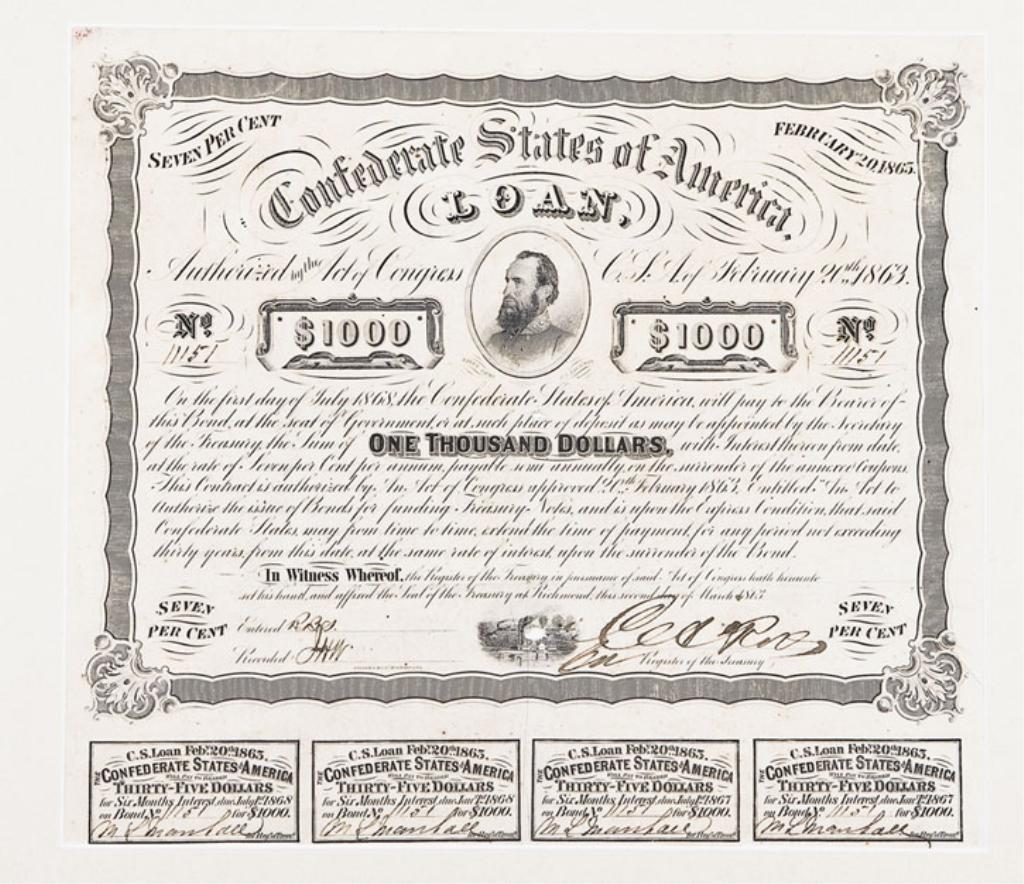 SEVEN PER CENT
FEBRUARY 20, 1863.
Confederate States of America.
LOAN,
Authorized by the Act of Congress C.S.A. of February 20th 1863.
No. $1000 $1000 No.
11151 11151
On the first day of July 1868, the Confederate States of America, will pay to the Bearer of
this Bond, at the seat of Government, or at such place of deposit as may be appointed by the Secretary
of the Treasury, the Sum of ONE THOUSAND DOLLARS, with Interest thereon from date,
at the rate of Seven per Cent per annum, payable semi annually, on the surrender of the annexed Coupons.
This Contract is authorized by An Act of Congress approved 20th February 1863, Entitled "An Act to
Authorize the issue of Bonds for funding Treasury Notes, and is upon the Express Condition, that said
Confederate States, may from time to time, extend the time of payment, for any period not exceeding
thirty years, from this date, at the same rate of interest, upon the surrender of the Bond.
In Witness Whereof, the Register of the Treasury, in pursuance of said Act of Congress hath hereunto
set his hand, and affixed the Seal of the Treasury at Richmond, this second day of March 1863
SEVEN PER CENT
SEVEN PER CENT
Entered
Recorded
Register of the Treasury
C.S. Loan Feb. 20th 1863.
THE CONFEDERATE STATES of AMERICA
WILL PAY TO BEARER
THIRTY-FIVE DOLLARS
for Six Months Interest, due July 1st 1868
on Bond No. 11151 for $1000.
C.S. Loan Feb. 20th 1863.
THE CONFEDERATE STATES of AMERICA
WILL PAY TO BEARER
THIRTY-FIVE DOLLARS
for Six Months Interest, due Jany 1st 1868
on Bond No. 11151 for $1000.
C.S. Loan Feb. 20th 1863.
THE CONFEDERATE STATES of AMERICA
WILL PAY TO BEARER
THIRTY-FIVE DOLLARS
for Six Months Interest, due July 1st 1867
on Bond No. 11151 for $1000.
C.S. Loan Feb. 20th 1863.
THE CONFEDERATE STATES of AMERICA
WILL PAY TO BEARER
THIRTY-FIVE DOLLARS
for Six Months Interest, due Jany 1st 1867
on Bond No. 11151 for $1000.